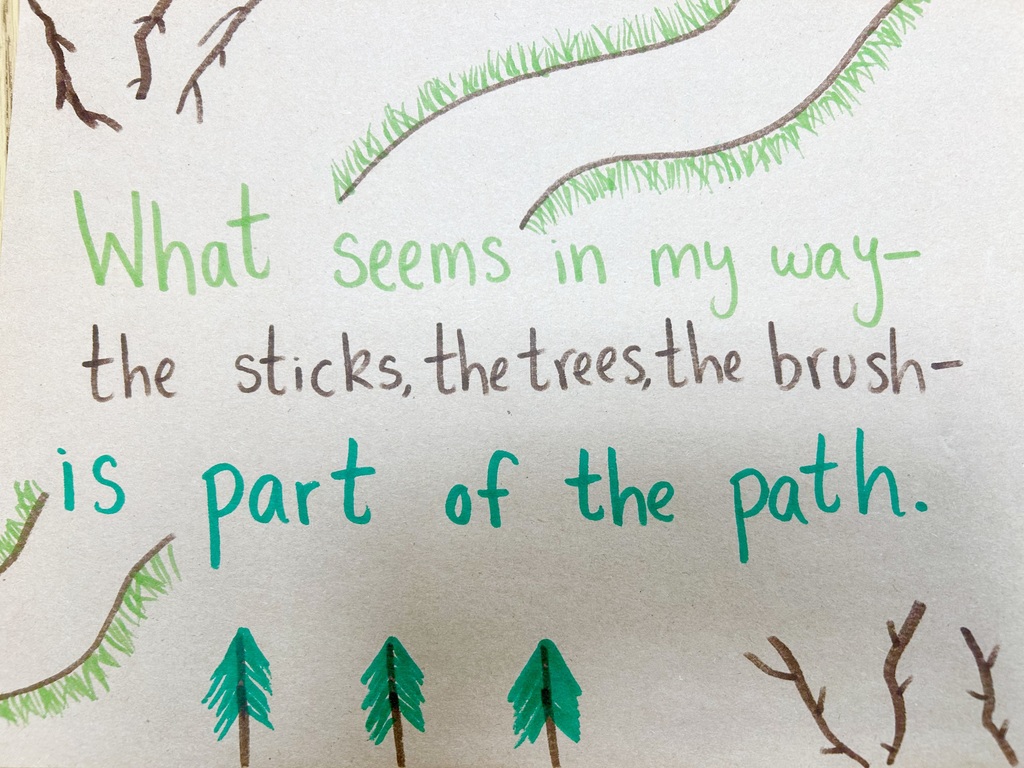 What seems in my way-
the sticks, the trees, the brush-
is part of the path.